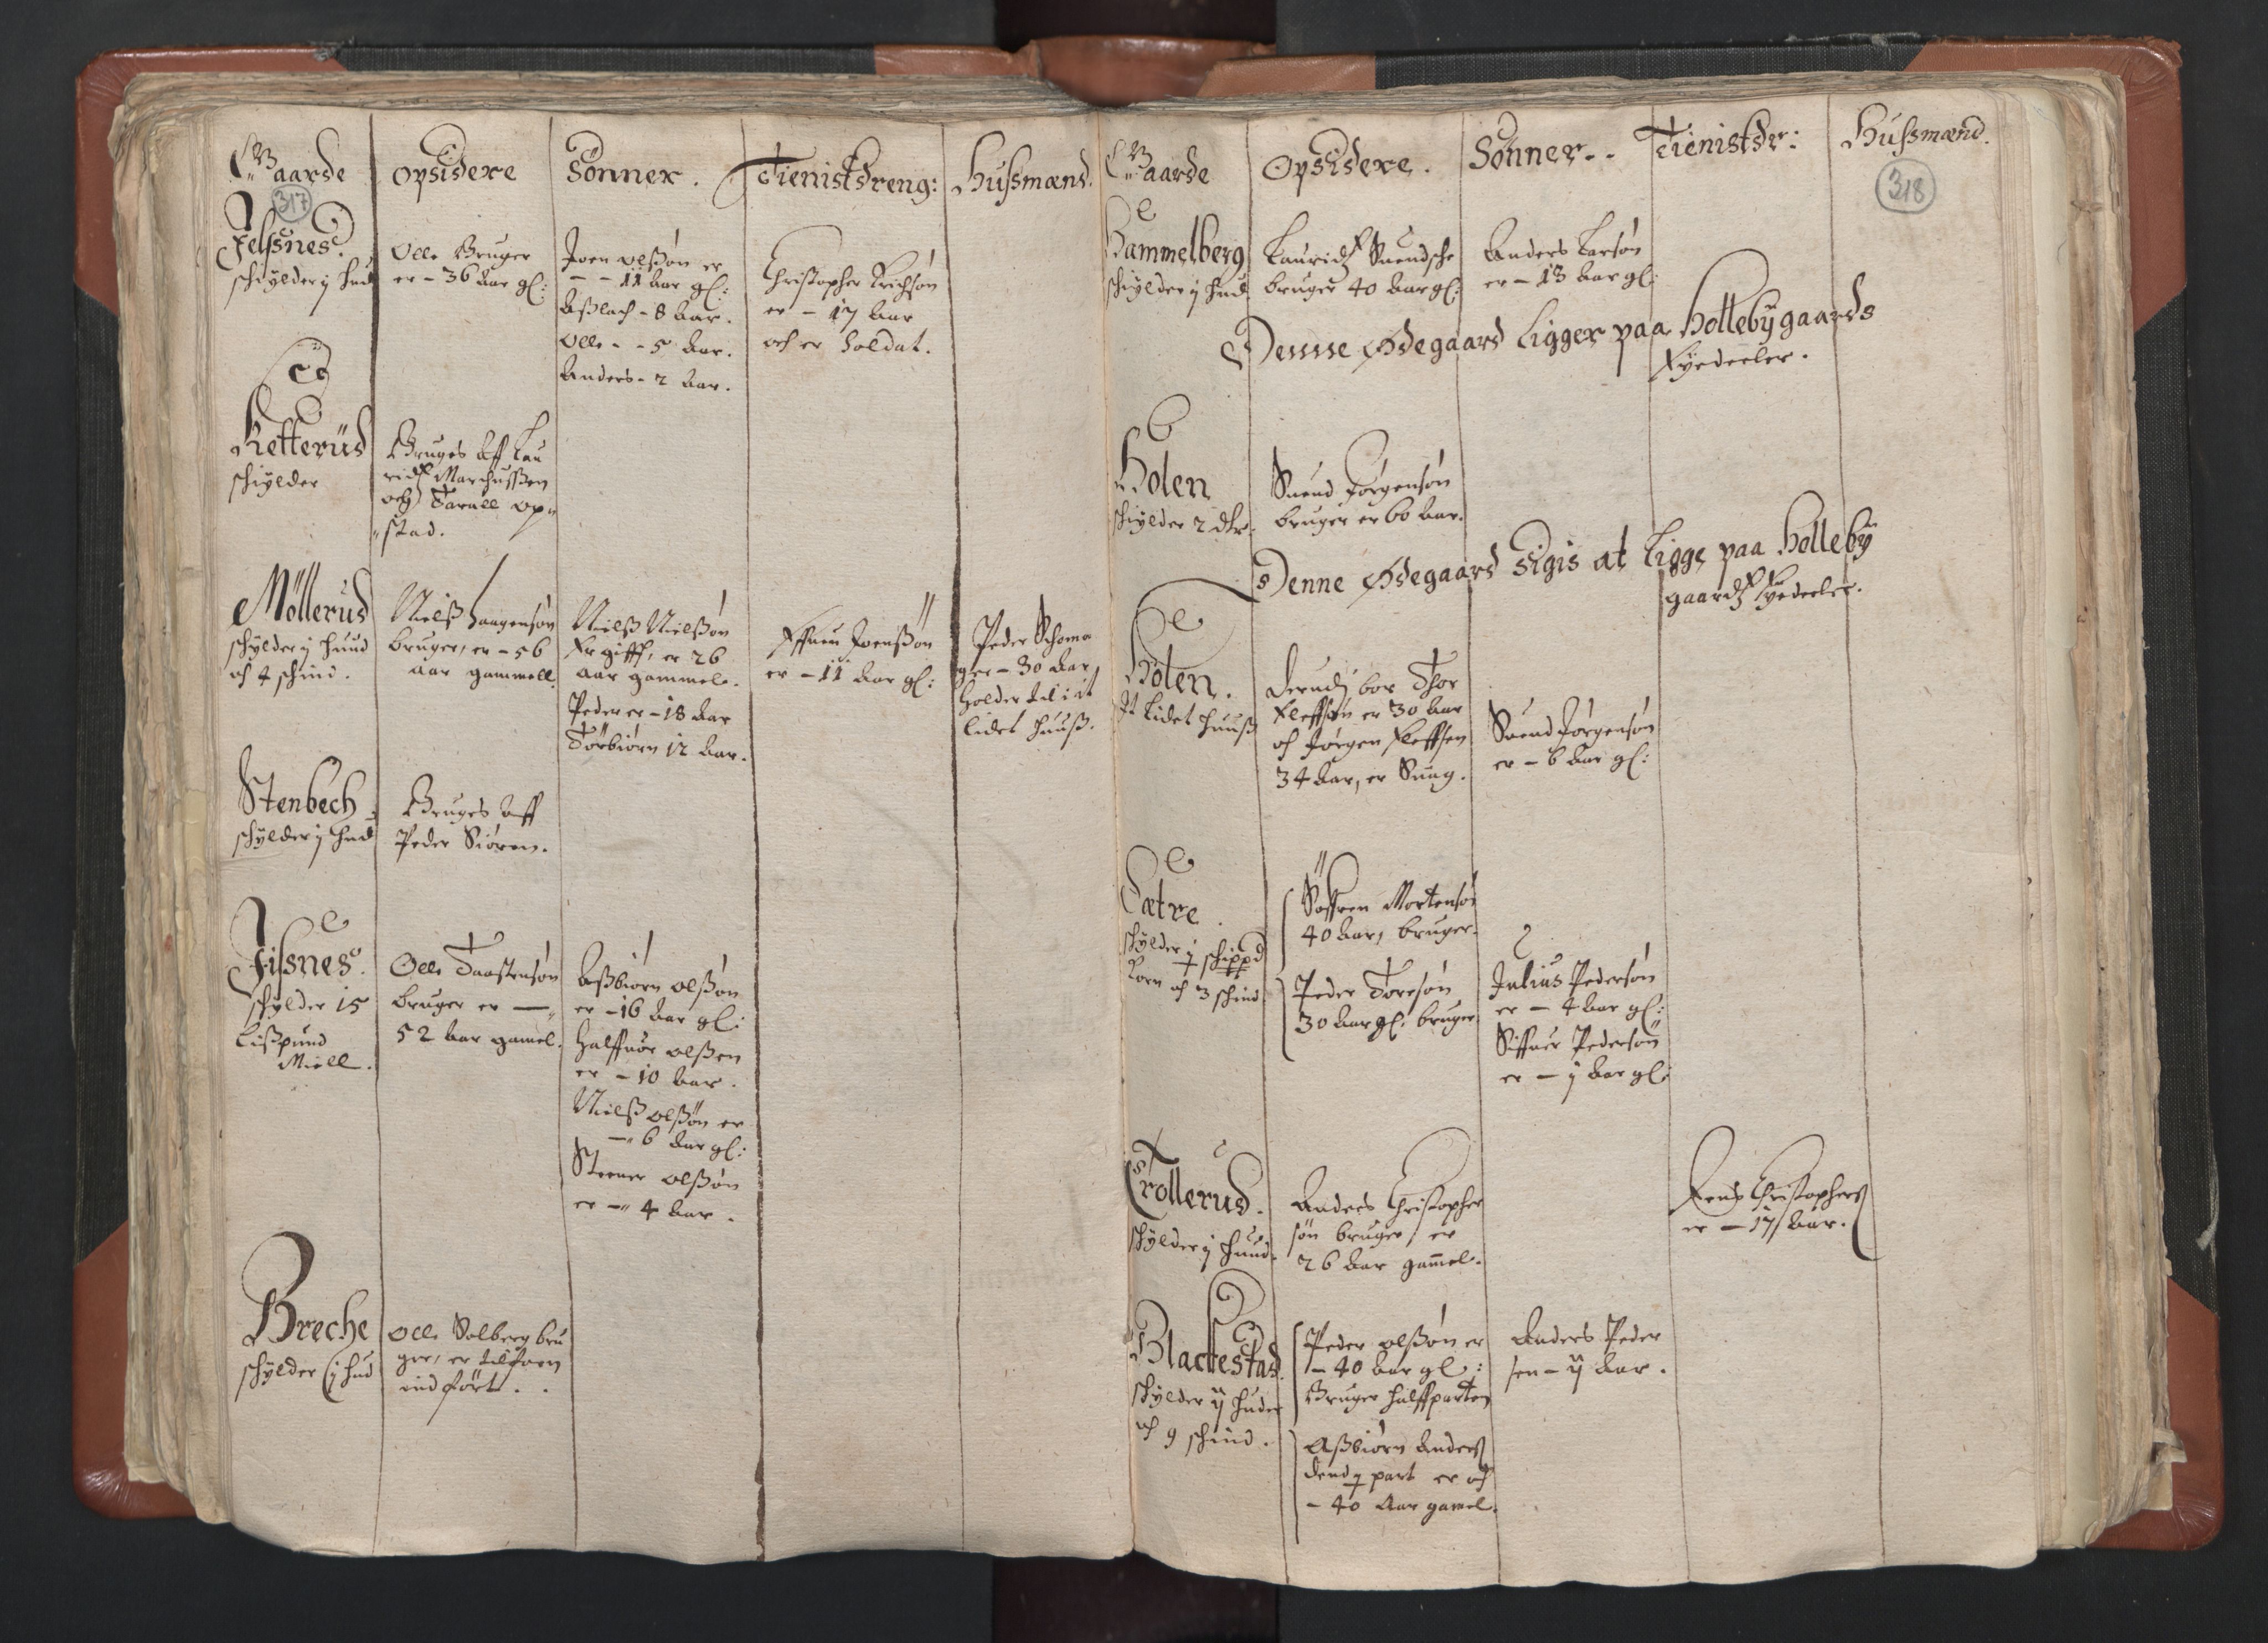 Gaarde
opsidere
Sönner.
Tienistdreng:
Hussmænd.
317
Jelssnes.
schylder j hud
Olle Bruger
er - 36 aar gl:
Joen olssøn er
- - 11 aar gl:
Asslach - 8 aar.
Olle - - 5 aar.
Anders - 2 aar.
Christopher Erichsøn
er - 17 aar
och er Soldat.
Ketterud
schylder
Bruges aff Lau
ridz Marchussen
och Tarall op=
=stad.
Möllerud
schylder j huud
och 4 schind.
Nielss Haagensøn
bruger, er - 56
aar gammell.
Nielss Nielssøn
er gifft, er 26
aar gammel.
Peder er - 18 aar
Torbiørn 12 aar.
Joenssøn
er - 11 aar gl:
Peder Schoma
ger - 30 aar
holder til i it
lidet huuss.
Stenbech
schylder j hud
Bruges aff
Peder Siøren.
Jilsnes.
schylder 15
Lisspund
Miell.
Olle Taastensøn
bruger er -
52 aar gamel.
Assbiørn olssøn
er - 16 aar gl:
Halffuor olssen
er - 10 aar.
Nielss olssøn er
- 6 aar gl:
Steener olssøn
er - 4 aar.
Breche
schylder j hud
Olle Solberg bru
ger, er tilforn
indført.
Gaarde
Opsidere.
Sönner.
Tienistdr:
Hussmænd.
318
Hammelberg
schylder j hud
Lauridz Suendsche
bruger 40 aar gl:
Anders Larsøn
er - 13 aar gl:
Dessse Ødegaard ligger paa Hollebygaards
Eyedeeler.
Holen
schylder 2 dlr.
Suend Jørgensøn
bruger er 60 aar.
Denne Ødegaard sigis at ligge paa Holleby
gaardz Eyedeeler.
Holen.
It lidet huuss
bor Thor
Eleffsøn er 30 aar
och Jørgen Eleffsen
34 aar, er Suag.
Suend Jørgensøn
er - 6 aar gl:
Sætre
schylder j schippd
Korn och 3 schind
Søffren Mortensøn
40 aar, bruger.
Peder Toresøn
30 aar gl. bruger
Julius Pedersøn
er - 4 aar gl:
Siffuer Pedersøn
er - j aar gl:
Trollerud.
schylder j huud.
Anders Christopher
søn bruger, er
26 aar gammel.
Christophers
er - 17 aar.
Blackestad.
schylder ij huder
och 9 schind.
Peder olssøn er
- 40 aar gl:
Bruger halffparten
Anders Peder
sen - ij aar.
Assbiørn Anders
dend part er och
- 40 Aar gamel.